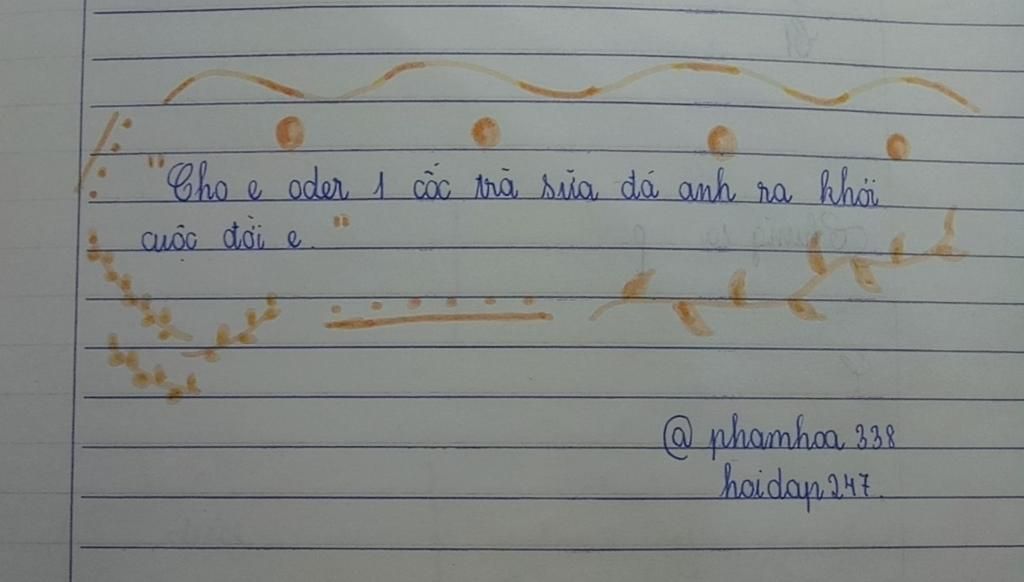 "Cho e oder 1 cốc trà sữa đá anh ra khỏi
cuộc đời e."
@ phamhoa 338
hoidap247.